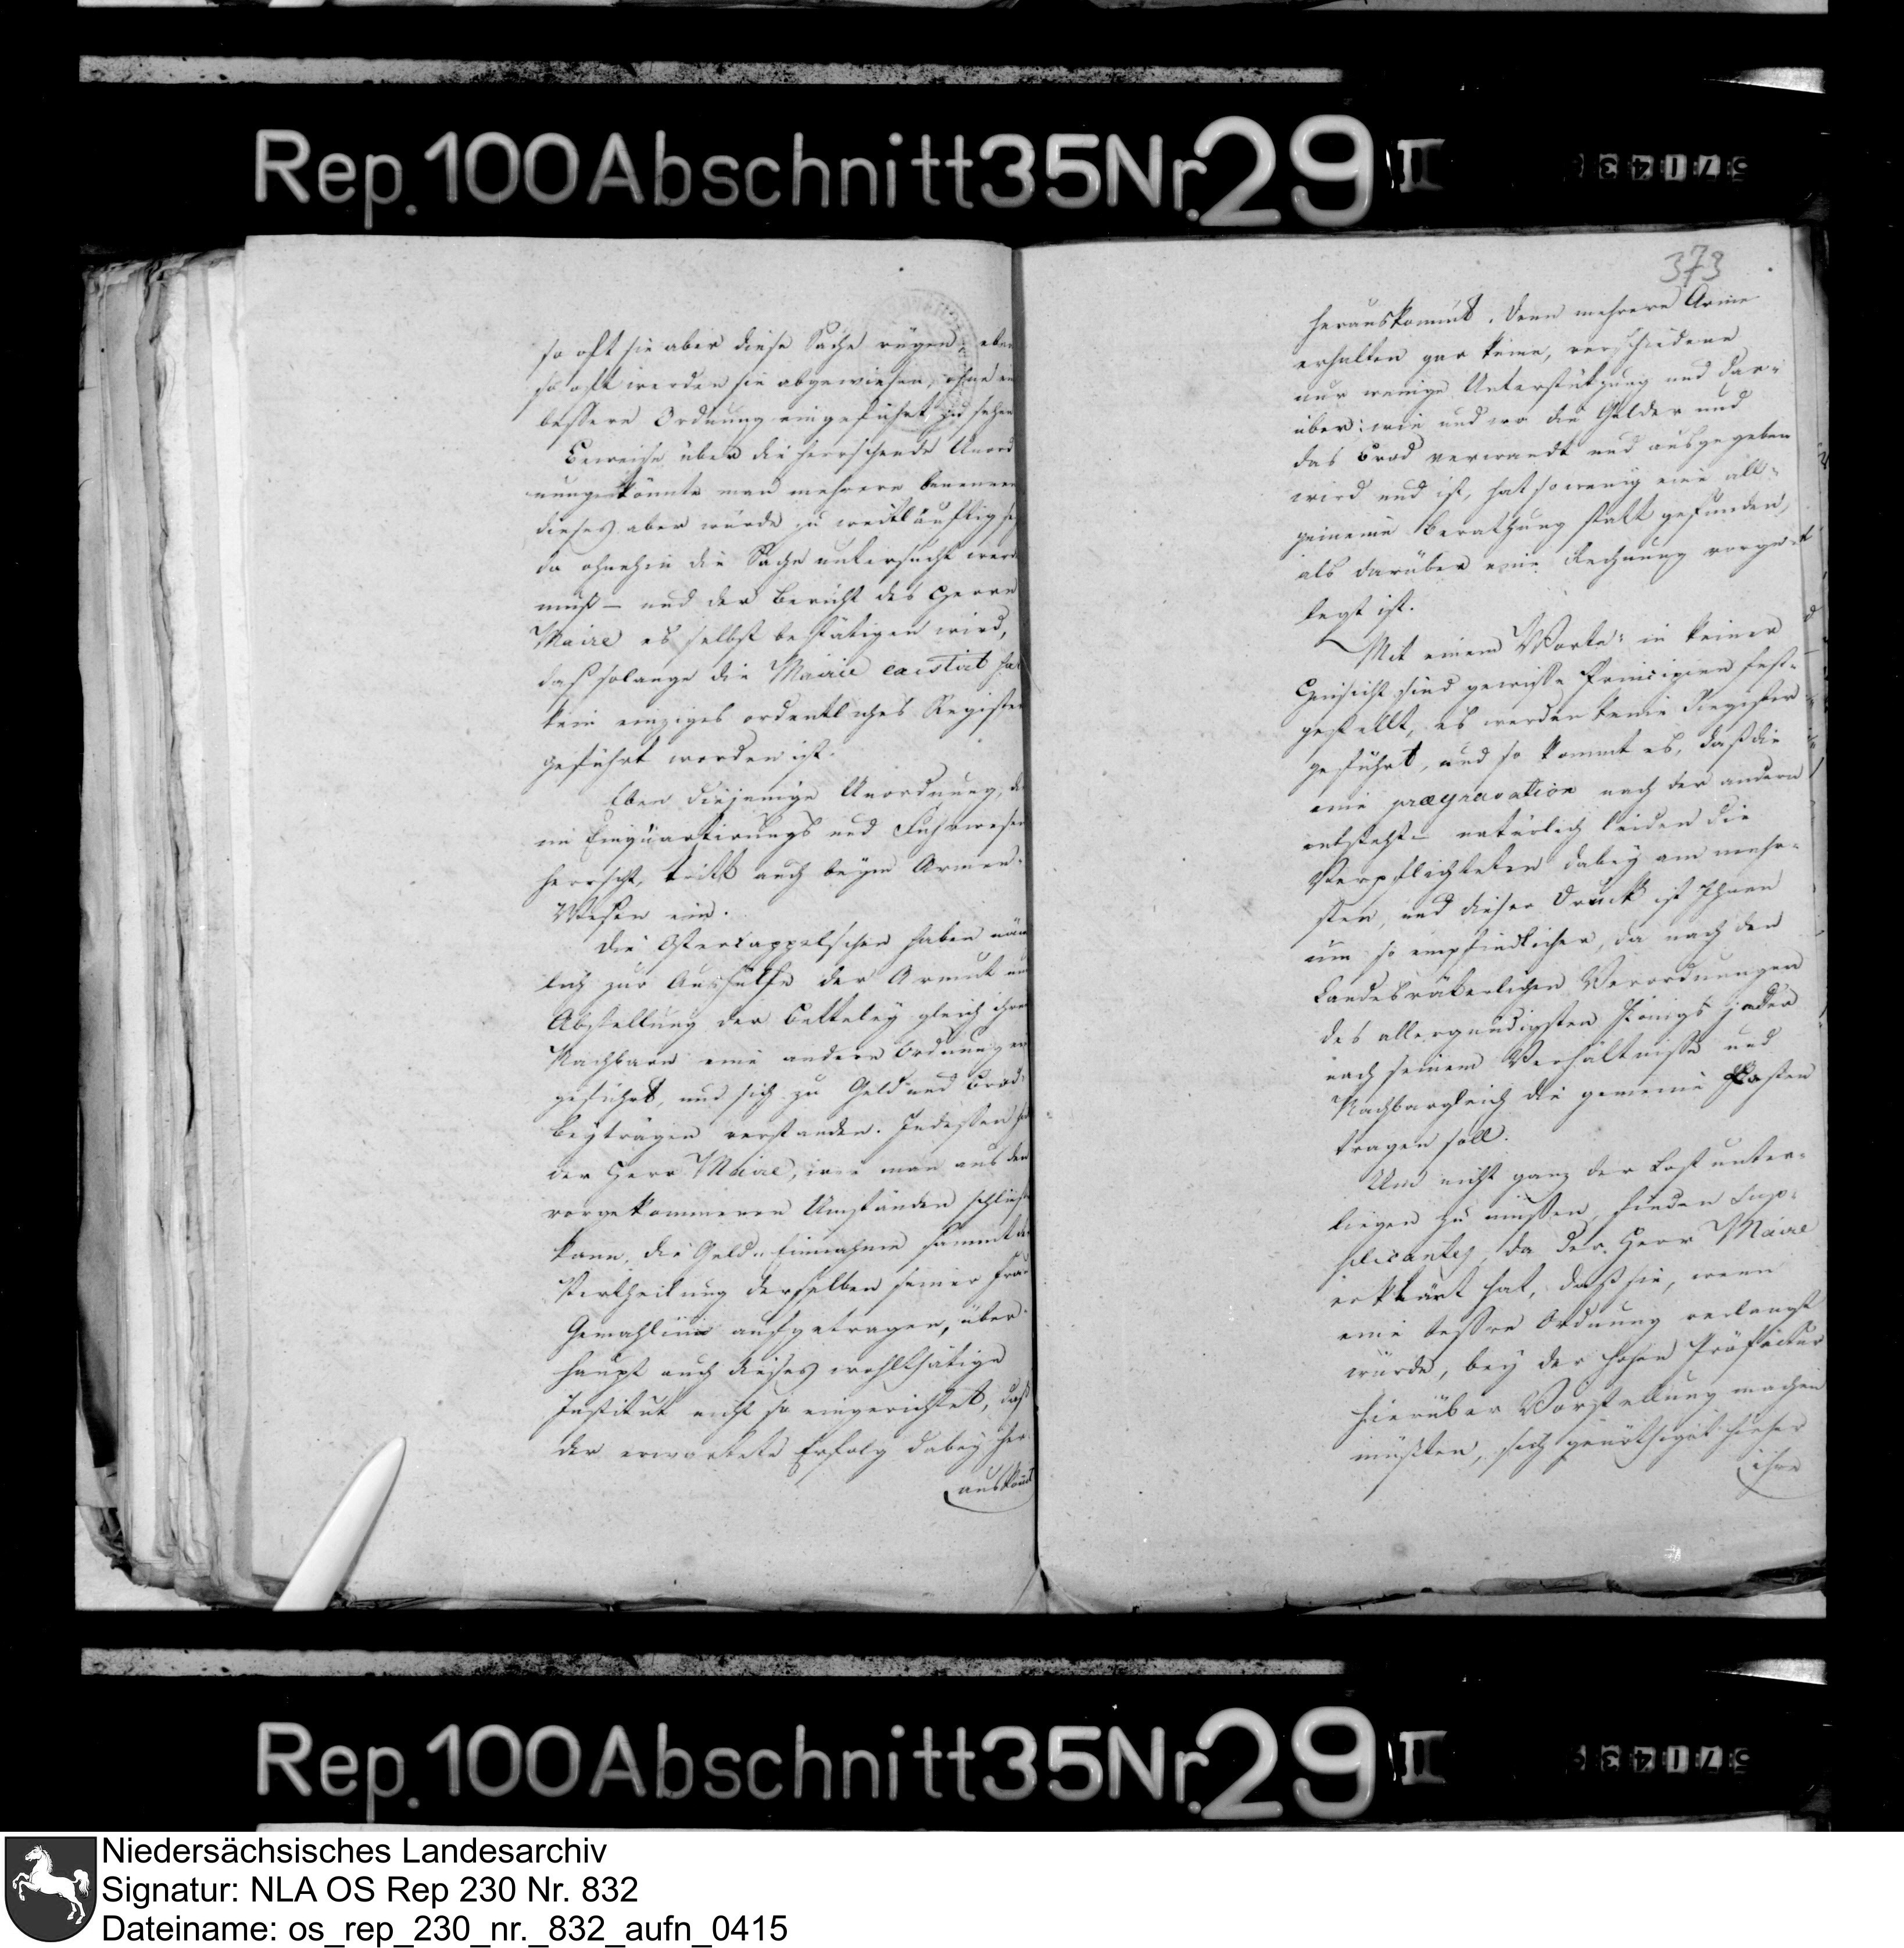 Rep. 100 Abschnitt 35 Nr. 29 II
so oft sie aber diese Sache rügen, eben
so oft werden sie abgewiesen, ohne ein
bessere Ordnung eingeführt zu sehen
Beweise über die herrschende Unord
nungen könnte man mehrere benennen
dieses aber würde zu weitläuftig sey
da ohnehin die Sache untersucht werd
muß – und der Bericht des Herrn
Maire es selbst bestätigen wird,
daß solange die Mairie existirt hat
kein einziges ordentliches Register
geführt worden ist.
Eben diejenige Unordnung, die
im Einquartirungs und Fuhrwesen
herrscht, tritt auch beym Armen-
Wesen ein.
Die Ostercappelschen haben näm
lich zur Aushülfe der Armut und
Abstellung der Betteley gleich ihren
Nachbarn eine andere Ordnung ein
geführt, und sich zu Geld und Brod-
beyträgen verstanden. Indessen hat
der Herr Maire, wie man aus den
vorgekommenen Umständen schließen
kann, die Geld-Einnahme sammt der
Vertheilung derselben seiner Frau
Gemahlinn aufgetragen, über-
haupt auch dieses wohlthätige
Institut nicht so eingerichtet, daß
der erwartete Erfolg dabey her-
auskömt
373
herauskömmt. Denn mehrere Arme
erhalten gar keine, verschiedene
nur wenige Unterstützung und dar-
über: wie und wo die Gelder und
das Brod verwandt und ausgegeben
wird und ist, hat so wenig eine all-
gemeine Berathung statt gefunden,
als darüber eine Rechnung vorge-
legt ist.
Mit einem Worte: in keiner
Hinsicht sind gewisse Principien fest-
gestellt, es werden keine Register
geführt, und so kommt es, daß die
eine prægravation nach der andern
entsteht – natürlich leiden die
Verpflichteten dabey am mehr-
sten, und dieser Druck ist Ihnen
um so empfindlicher, da nach den
Landesväterlichen Verordnungen
des allergnädigsten Königs jeder
nach seinem Verhältnisse und
Nachbargleich die gemeine Lasten
tragen soll.
Um nicht ganz der Last unter-
liegen zu müssen, finden Sup-
plicantes, da der Herr Maire
erklärt hat, daß sie, wenn
eine bessre Ordnung verlangt
würde, bey der hohen Präfectur
hierüber Vorstellung machen
müßten, sich genöthiget hieher
ihre
Rep. 100 Abschnitt 35 Nr. 29 II
Niedersächsisches Landesarchiv
Signatur: NLA OS Rep 230 Nr. 832
Dateiname: os_rep_230_nr._832_aufn_0415